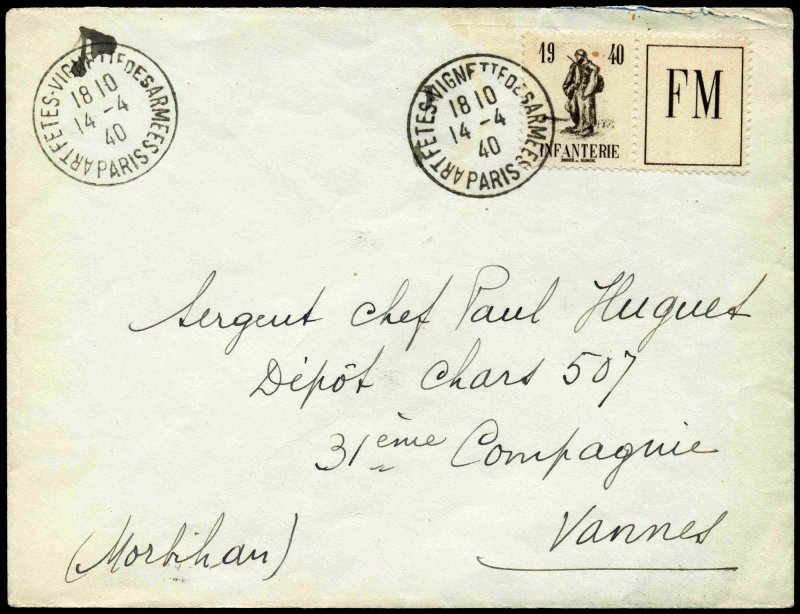 ART FÊTES-VIGNETTE DES ARMÉES
18 10
14 -4
40
PARIS
ART FÊTES-VIGNETTE DES ARMÉES
18 10
14 -4
40
PARIS
19 40
INFANTERIE
FM
Sergent chef Paul Huguet
Dépôt Chars 507
31ème Compagnie
Vannes
(Morbihan)